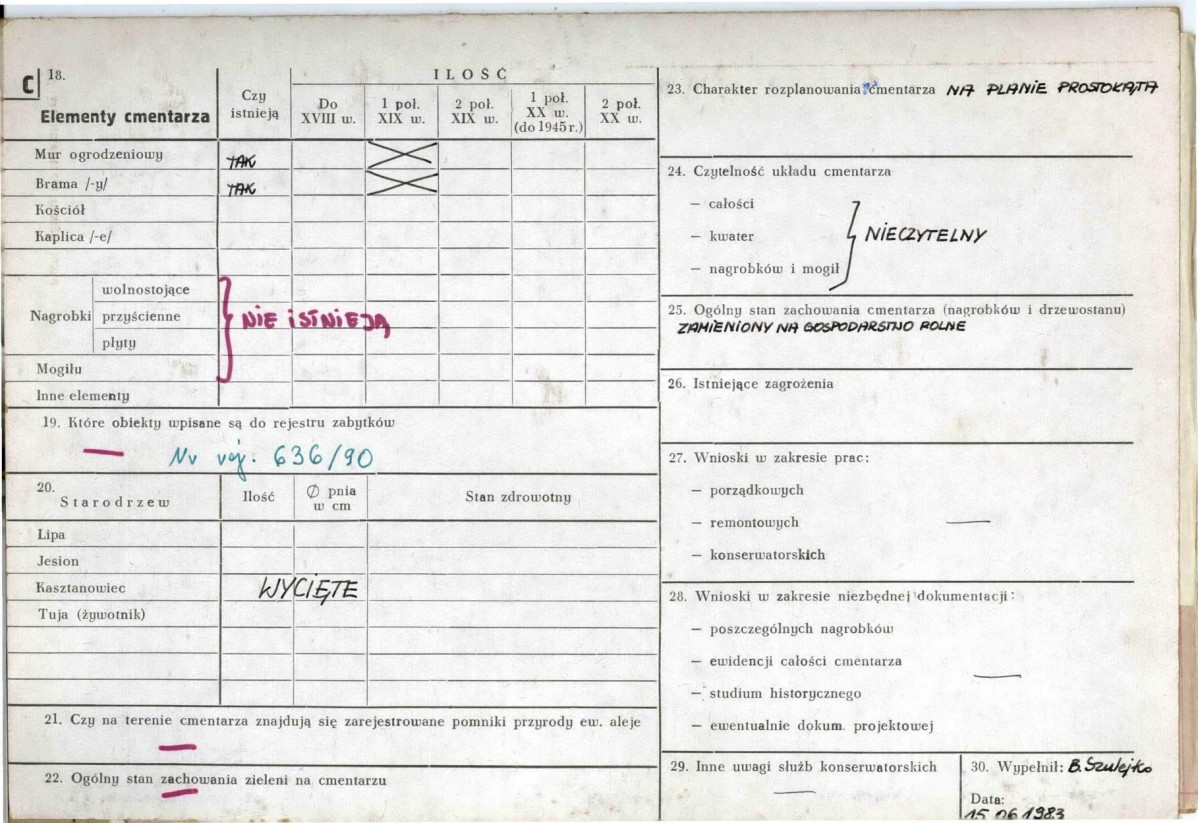 C
18.
Elementy cmentarza
Czy istnieją
ILOŚĆ
Do XVIII w.
1 poł. XIX w.
2 poł. XIX w.
1 poł. XX w. (do 1945 r.)
2 poł. XX w.
Mur ogrodzeniowy TAK
Brama /-y/ TAK
Kościół
Kaplica /-e/
Nagrobki
wolnostojące
przyścienne
płyty
NIE ISTNIEJĄ
Mogiłu
Inne elementy
19. Które obiekty wpisane są do rejestru zabytków
— Nv voj. 636/90
20.
Starodrzew
Ilość
Ø pnia w cm
Stan zdrowotny
Lipa
Jesion
Kasztanowiec WYCIĘTE
Tuja (żywotnik)
21. Czy na terenie cmentarza znajdują się zarejestrowane pomniki przyrody ew. aleje
—
22. Ogólny stan zachowania zieleni na cmentarzu
—
23. Charakter rozplanowania cmentarza NA PLANIE PROSTOKĄTA
24. Czytelność układu cmentarza
— całości
— kwater NIECZYTELNY
— nagrobków i mogił
25. Ogólny stan zachowania cmentarza (nagrobków i drzewostanu)
ZAMIENIONY NA GOSPODARSTWO ROLNE
26. Istniejące zagrożenia
27. Wnioski w zakresie prac:
— porządkowych
— remontowych —
— konserwatorskich
28. Wnioski w zakresie niezbędnej dokumentacji:
— poszczególnych nagrobków
— ewidencji całości cmentarza
—
— studium historycznego
— ewentualnie dokum. projektowej
29. Inne uwagi służb konserwatorskich
—
30. Wypełnił: B. Szulejko
Data:
15.06.1983